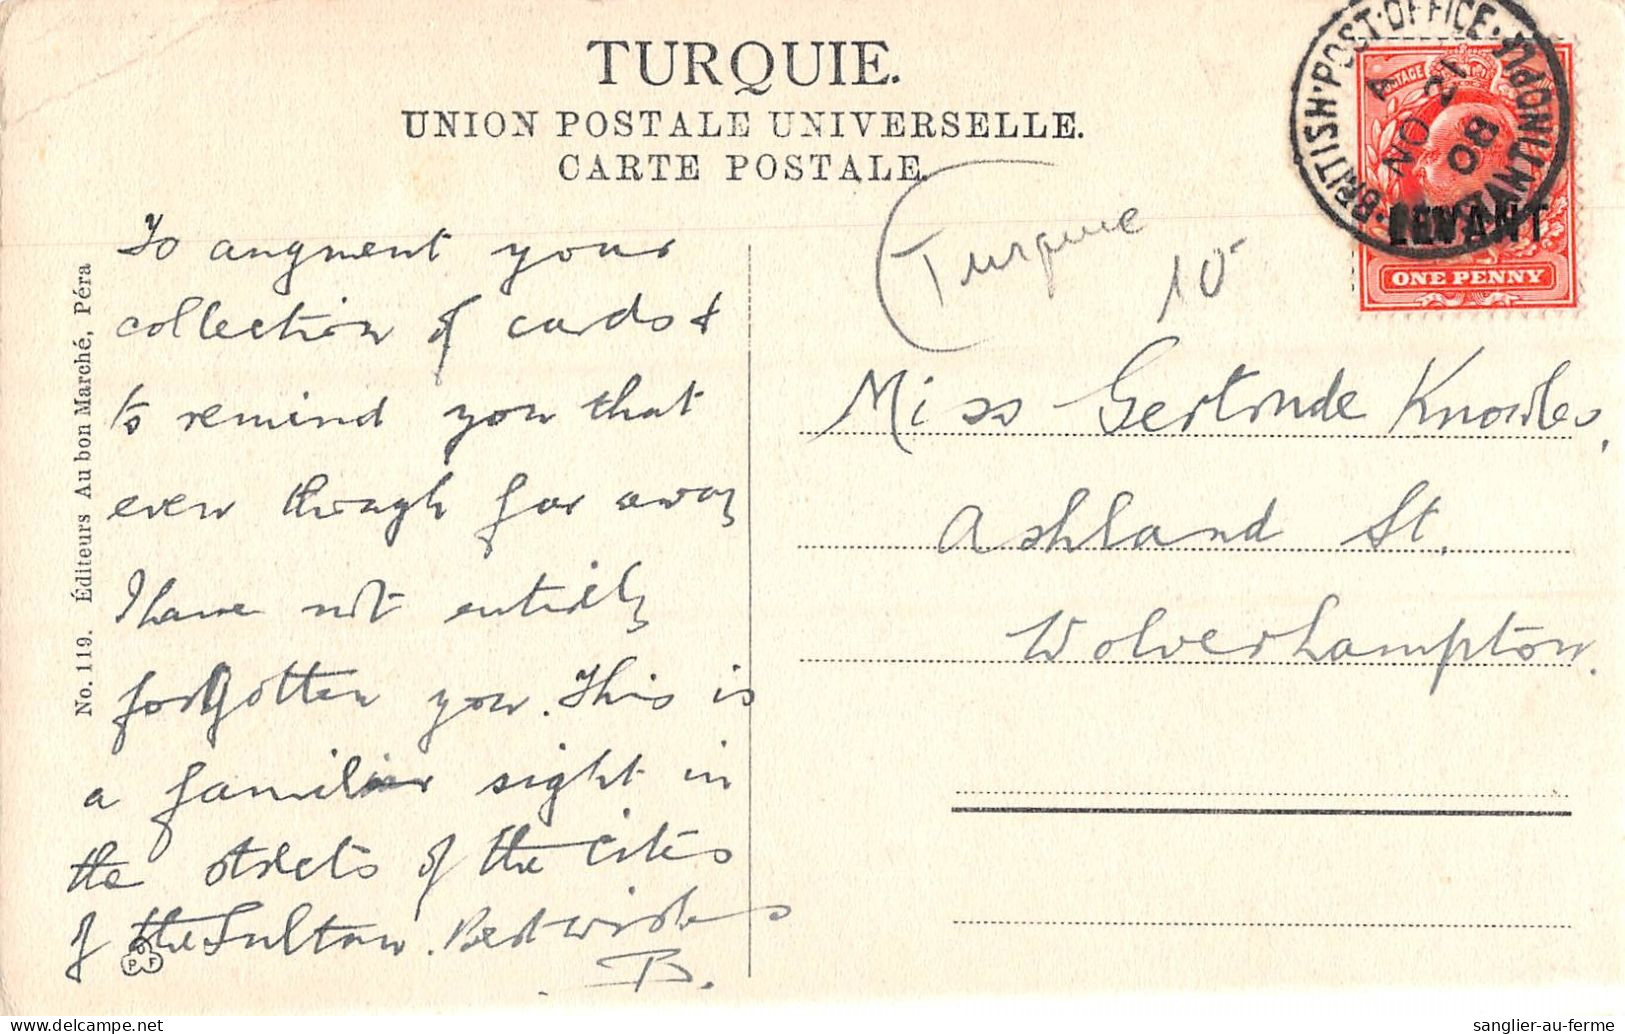 TURQUIE.
UNION POSTALE UNIVERSELLE.
CARTE POSTALE.
BRITISH·POST·OFFICE·CONSTANTINOPLE·
A
NO 21
08
POSTAGE
LEVANT
ONE PENNY
No. 119. Éditeurs Au bon Marché, Péra
To augment your
collection of cards &
to remind you that
even though far away
I have not entirely
forgotten you. This is
a familiar sight in
the streets of the cities
of the Sultan. Best wishes
B.
P F
Turquie
10-
Miss Gertrude Knowles,
Ashland St.
Wolverhampton.
sanglier-au-ferme